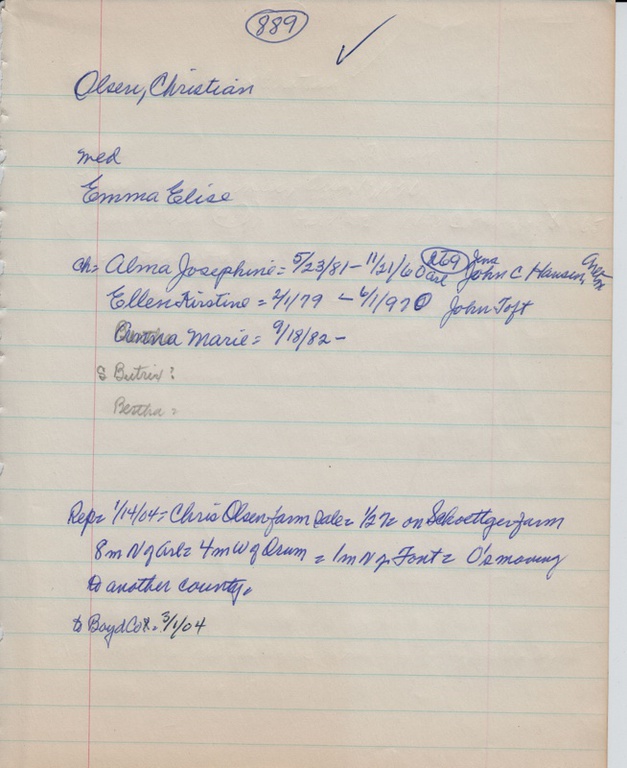 889
Olsen, Christian
med
Emma Elise
ch= Alma Josephine = 5/23/81 - 11/21/60 269 Arl Jens John C Hansen,
Ellen Kirstine = 2/1/79 - 6/1/970 John Toft
Anna Marie = 9/18/82 -
S Butrix?
Bertha =
Rep = 1/14/04 = Chris Olsen farm Sale = 1/27 = on Schoettger farm
8m N of Arl = 4m W of Orum = 1m N of Font = O's moving
to another county.
to Boyd Co = 3/1/04